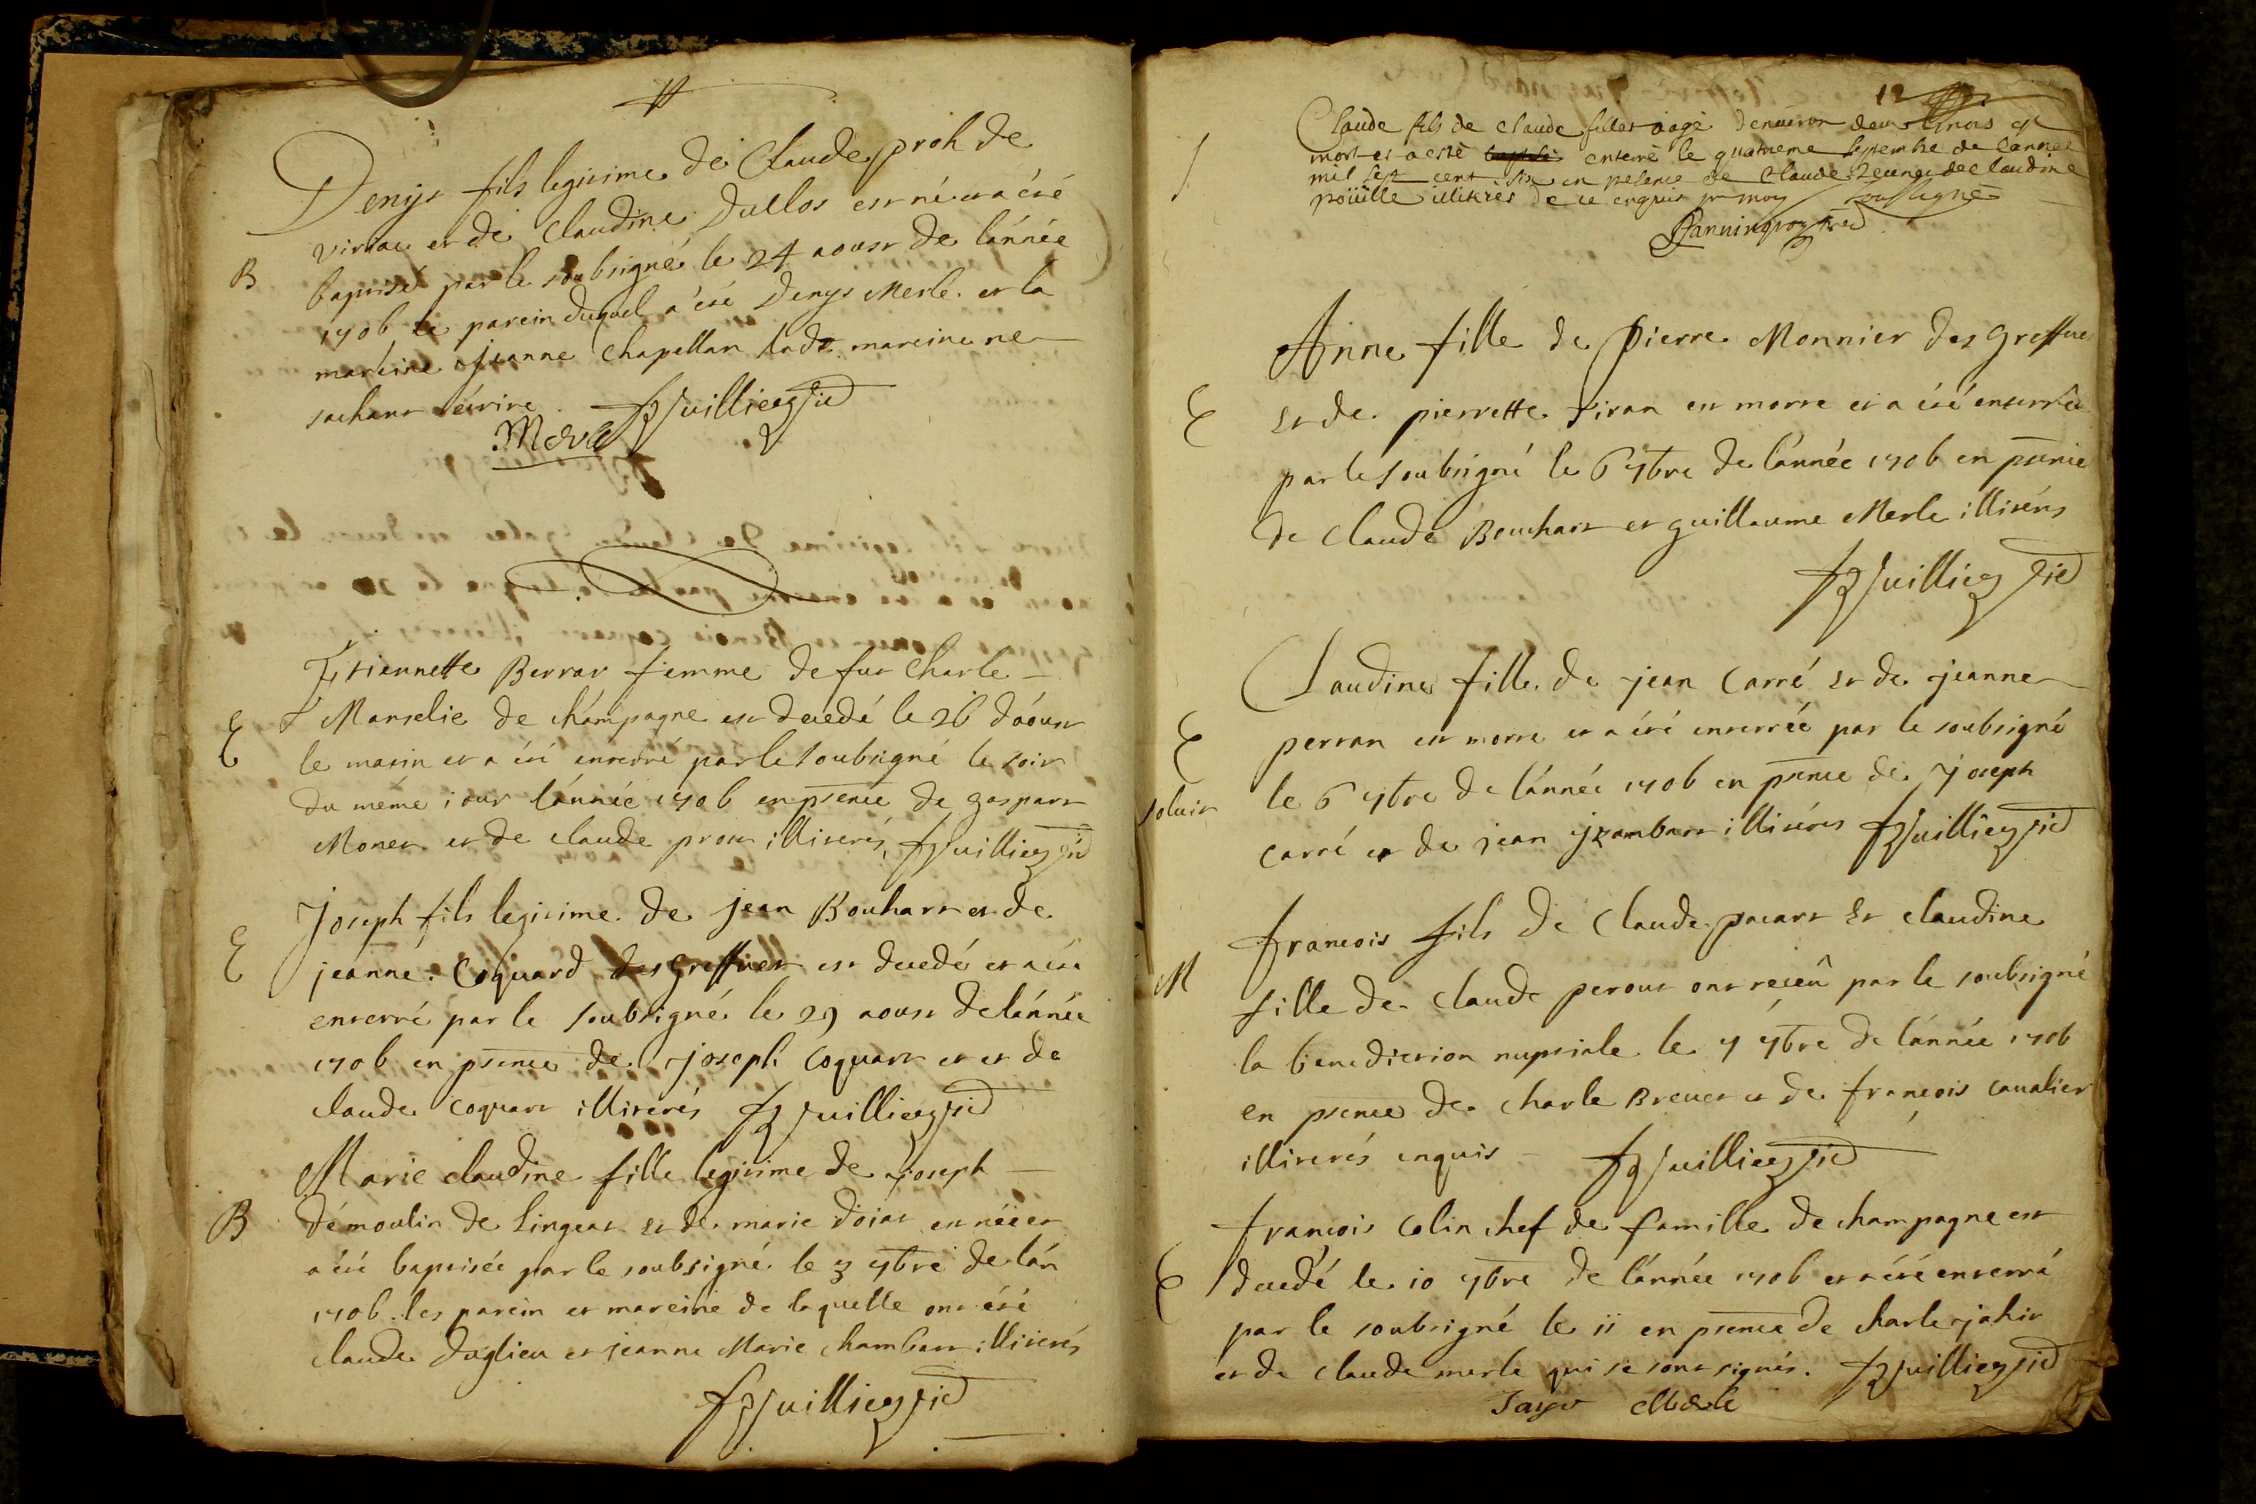 Denys fils legitime de Claude proh de
viriae et de Claudine Dullos est né et a été
B
baptisé par le soubsigné le 24 aoust de l'année
1706 le parein duquel a été Denys Merle et la
mareine jeanne Chapellan lade mareine ne
sachant écrire
Merle
Etiennette Berrar femme de fut Charle
E
Marselie de champagne est decedé le 26 d'aoust
le matin et a été enterré par le soubsigné le soir
du méme iour l'année 1706 en psence de gaspart
Monet et de claude prost illiterés, JFVuilliez
Joseph fils legitime de jean Bouhart et de
E
jeanne Coquard des greffiers est decedé et a été
enterré par le soubsigné le 29 aoust de l'année
1706 en psence de joseph Coquart et et de
claude coquart illiterés JFVuilliez
Marie claudine fille legitime de joseph
B
démoulin de lingeat et de marie doiat est née et
a été baptisée par le soubsigné le 3 7bre de l'an
1706 les parein et mareine de laquelle ont été
claude duglieu et jeanne Marie chambart illiterés
JFVuilliez
12
Claude fils de claude fillet aagé denuiron deux mois est
mort et a esté enterré le quatrieme septembre de lannee
mil sept cent six en presence de Claude et de claudine
poüille illiterés de ce enquis p moy soussigné
Anne fille de pierre Monnier des greffiers
E
et de pierrette Tiran est morte et a été enterrée
par le soubsigné le 6 7bre de l'année 1706 en psence
de claude Bouhart et guillaume Merle illiterés
JFVuilliez
Claudine fille de jean Carré et de jeanne
E
perran est morte et a été enterrée par le soubsigné
soluit
le 6 7bre de l'année 1706 en psence de joseph
carré et de jean illiterés JFVuilliez
francois fils de Claude pacart et claudine
M
fille de claude perout ont receû par le soubsigné
la benediction nuptiale le 7 7bre de l'année 1706
en psence de charle Brevet et de francois cavalier
illiterés enquis JFVuilliez
francois Colin chef de famille de champagne est
E
decedé le 10 7bre de l'année 1706 et a été enterré
par le soubsigné le 11 en psence de charle jahir
et de claude merle qui se sont signés. JFVuilliez
Merle